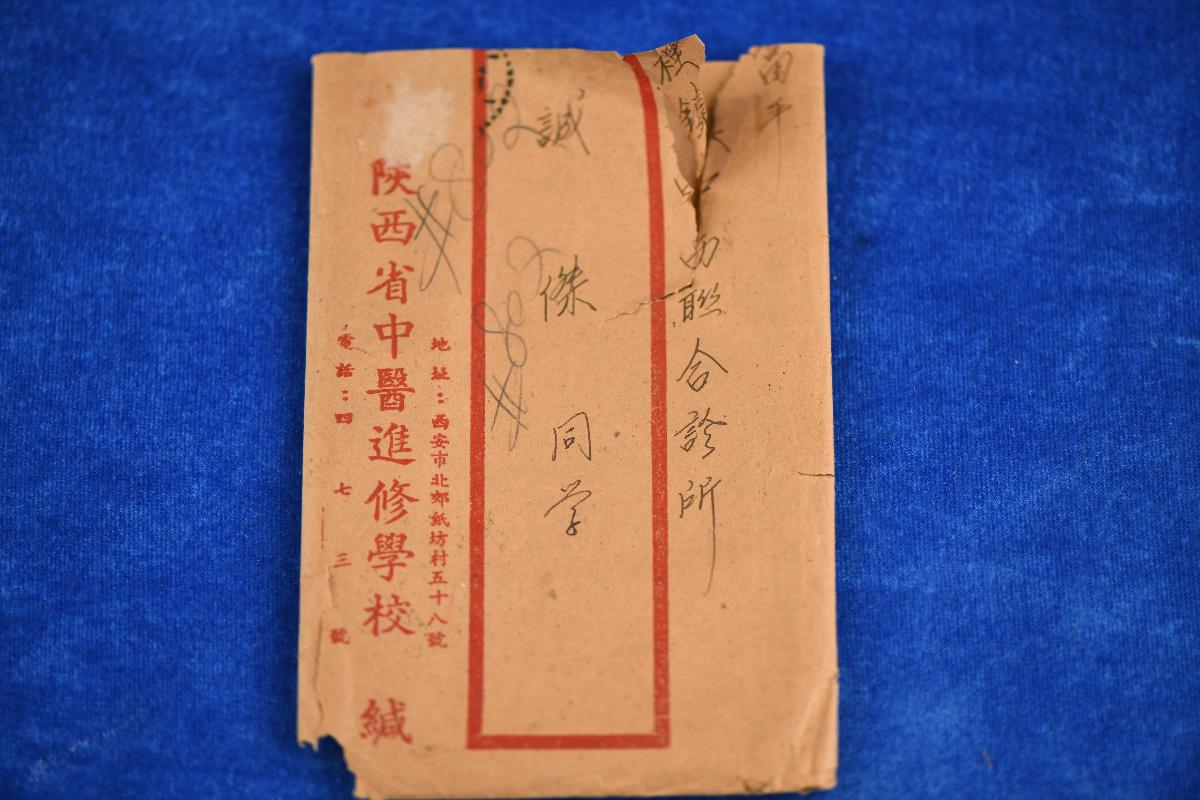 富平
西聯合診所
誠傑同学
地址：西安市北郊紙坊村五十八號
陝西省中醫進修學校 緘
電話：四七三號